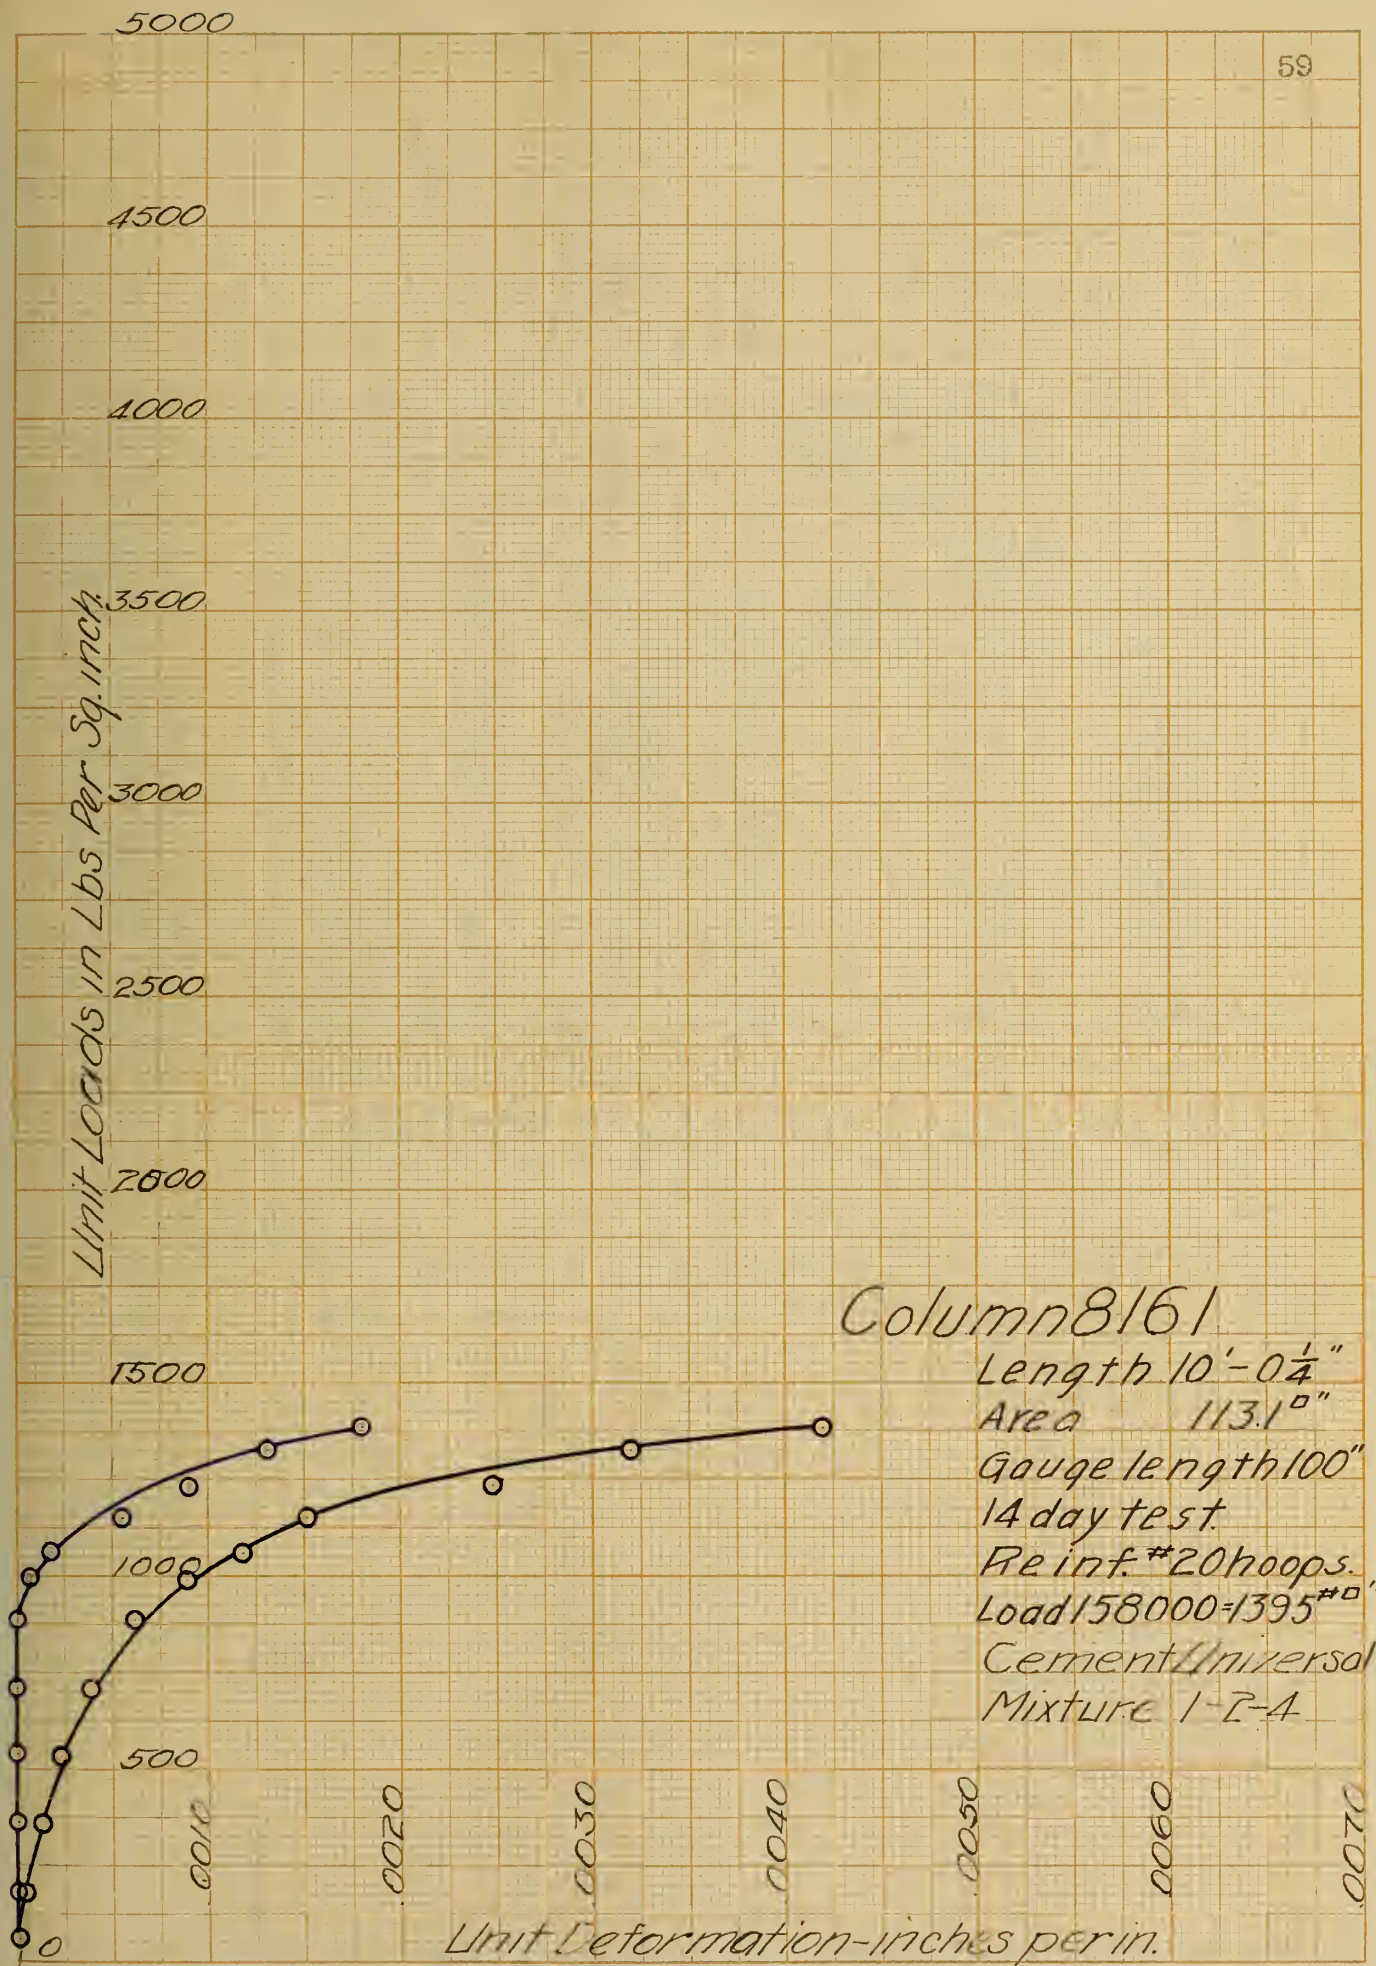 5000
59
4500
4000
3500
3000
2500
2000
1500
1000
500
0
Unit Loads in Lbs Per Sq. inch.
Column 8161
Length 10'-0¼"
Area 113.1□"
Gauge length 100"
14 day test.
Reinf. #20 hoops.
Load 158000=1395#□"
Cement Universal
Mixture 1-2-4
.0010
.0020
.0030
.0040
.0050
.0060
.0070
Unit Deformation-inches per in.